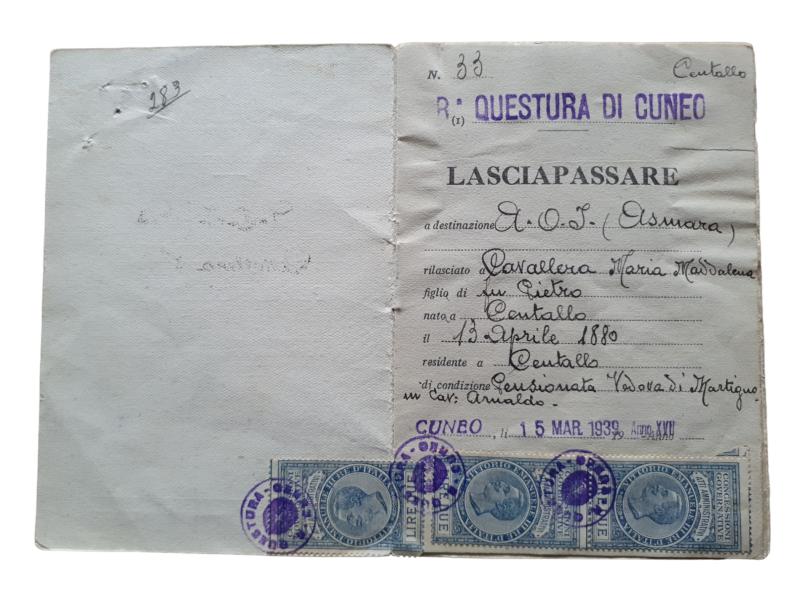 283
N. 33
Centallo
R.ª QUESTURA DI CUNEO
(1)
LASCIAPASSARE
a destinazione A.O.I. (Asmara)
rilasciato a Cavallera Maria Maddalena
figlio di fu Pietro
nato a Centallo
il 13 Aprile 1880
residente a Centallo
di condizione Pensionata Vedova di Martigno
in Cav: Arnaldo.
CUNEO, li 15 MAR. 1939 Anno XVII
QUESTURA - CUNEO
QUESTURA - CUNEO
QUESTURA - CUNEO
VITTORIO EMANUELE III RE D'ITALIA
LIRE DUE
VITTORIO EMANUELE III RE D'ITALIA
LIRE DUE
ATTI AMMINISTRATIVI
CONCESSIONI GOVERNATIVE
VITTORIO EMANUELE III RE D'ITALIA